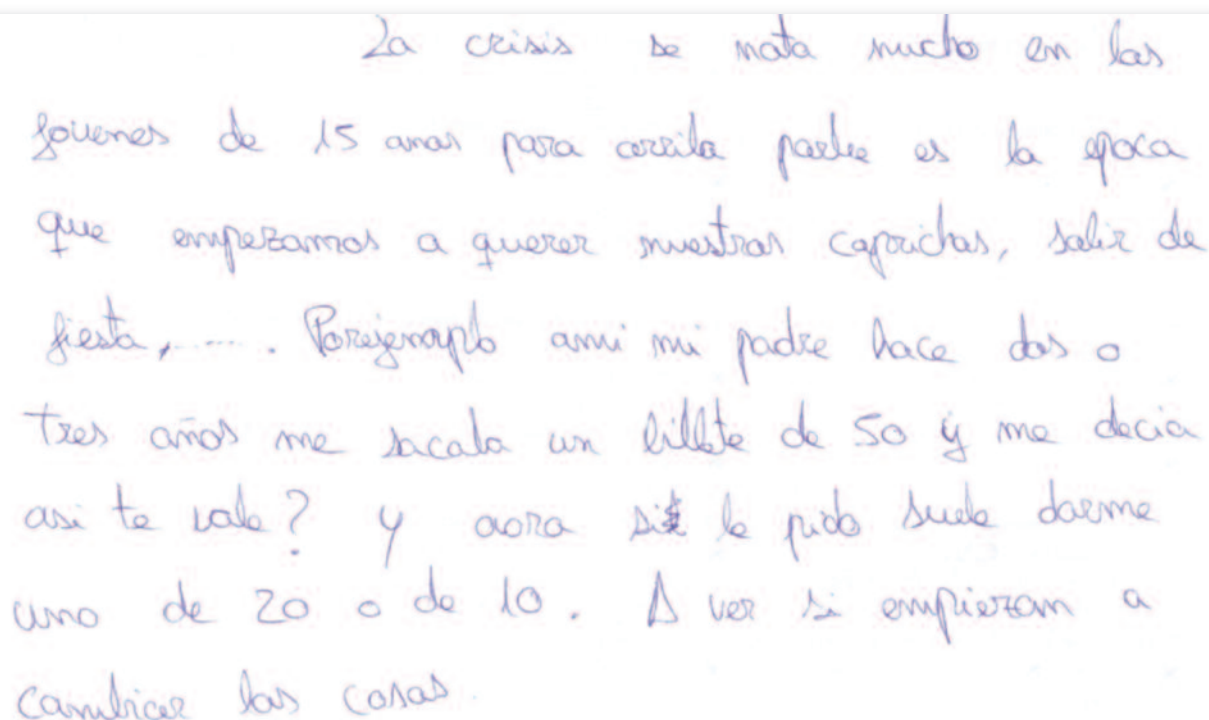 La crisis se nota mucho en los
jovenes de 15 anos para arriba parke es la epoca
que empezamos a querer nuestros caprichos, salir de
fiesta,..... Porejemplo ami mi padre hace dos o
tres años me sacaba un billete de 50 y me decia
asi te vale? y aora si le pido suele darme
uno de 20 o de 10. A ver si empiezan a
cambiar las cosas.